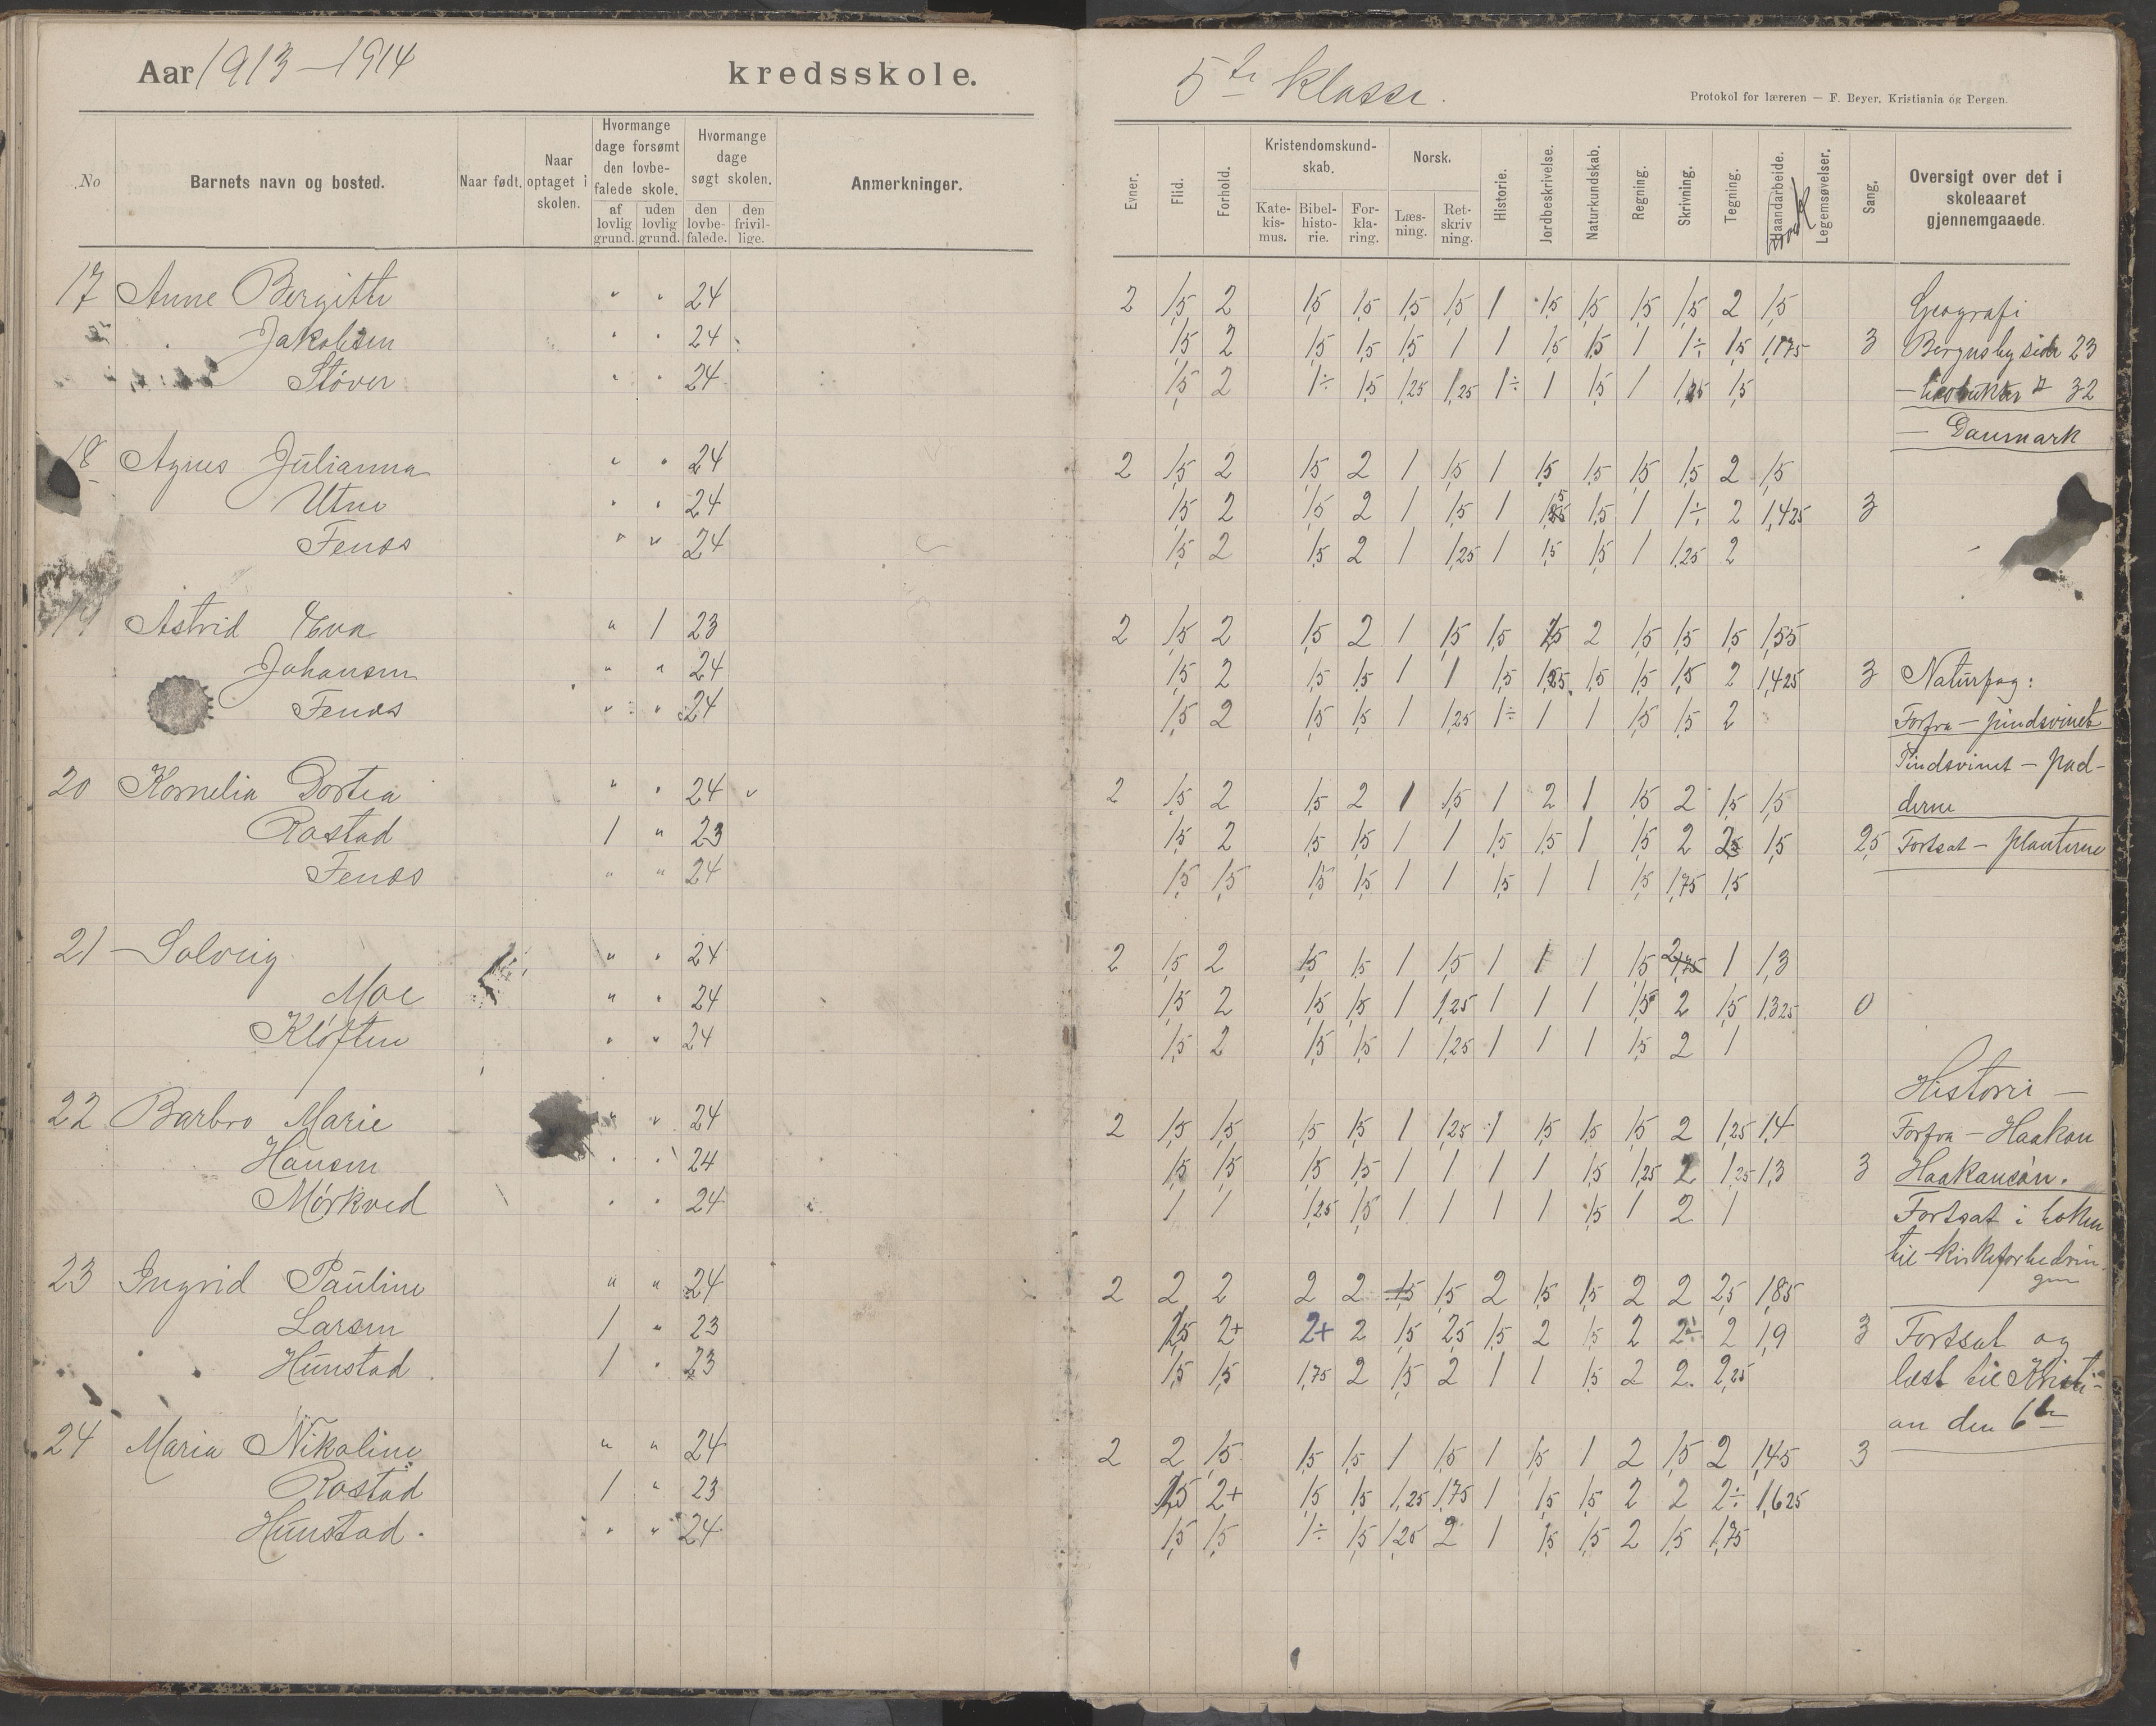 Aar 1913-1914 kredsskole.
5te klasse.
Protokol for læreren — F. Beyer, Kristiania og Bergen.
No
Barnets navn og bosted.
Naar født.
Naar optaget i skolen.
Hvormange dage forsømt den lovbe- falede skole.
af lovlig grund.
uden lovlig grund.
Hvormange dage søgt skolen.
den lovbe- falede.
den frivil- lige.
Anmerkninger.
Evner.
Flid.
Forhold.
Kristendomskund- skab.
Kate- kis- mus.
Bibel- histo- rie.
For- kla- ring.
Norsk.
Læs- ning.
Ret- skriv ning.
Historie.
Jordbeskrivelse.
Naturkundskab.
Regning.
Skrivning.
Tegning.
Haandarbeide.
Legemsøvelser.
Sang.
Oversigt over det i skoleaaret gjennemgaaede.
17 Anne Bergitte " " 24 2 1,5 2 1,5 1,5 1,5 1,5 1 1,5 1,5 1,5 1,5 2 1,5 Geografi
Jakobsen " " 24 1,5 2 1,5 1,5 1,5 1 1 1,5 1,5 1 1÷ 1,5 1,175 3 Bergens by side 23
Støver " " 24 1,5 2 1÷ 1,5 1,25 1,25 1÷ 1 1,5 1 1,5 32
— Danmark
18 Agnes Julianna " " 24 2 1,5 2 1,5 2 1 1,5 1 1,5 1,5 1,5 1,5 2 1,5
Utne " " 24 1,5 2 1,5 2 1 1,5 1 1,5 1 1÷ 2 1,425 3
Fenes " " 24 1,5 2 1,5 2 1 1,25 1 1,5 1,5 1 1,25 2
19 Astrid Eva " 1 23 2 1,5 2 1,5 2 1 1,5 1,5 2 1,5 1,5 1,5 1,55
Johansen " " 24 1,5 2 1,5 1,5 1 1 1,5 1,5 1,5 1,5 2 1,425 3 Naturfag:
Fenes " " 24 1,5 2 1,5 1,5 1 1,25 1÷ 1 1 1,5 1,5 2 Forfra — pindsvinet
Pindsvinet — pad-
20 Kornelia Dortea " " 24 2 1,5 2 1,5 2 1 1,5 1 2 1 1,5 2 1,5 1,5 derne
Rostad 1 " 23 1,5 2 1,5 1,5 1 1 1,5 1,5 1 1,5 2 1,5 2,5 Fortsat — planterne
Fenes " " 24 1,5 1,5 1,5 1,5 1 1 1,5 1 1 1,5 1,75 1,5
21 Solveig " " 24 2 1,5 2 1,5 1,5 1 1,5 1 1 1 1,5 2 1 1,3
Moe " " 24 1,5 2 1,5 1,5 1 1,25 1 1 1 1,5 2 1,5 1,325 0
Kløften " " 24 1,5 2 1,5 1,5 1 1,25 1 1 1 1,5 2 1
Historie —
22 Barbro Marie " " 24 2 1,5 1,5 1,5 1,5 1 1,25 1 1,5 1,5 1,5 2 1,25 1,4 Forfra — Haakon
Hansen " " 24 1,5 1,5 1,5 1,5 1 1 1 1 1,5 1,25 2 1,25 1,3 3 Haakansøn.
Mørkved " " 24 1 1 1,25 1,5 1 1 1 1 1,5 1 2 1 Fortsat i boken
til kirkeforbedrin
gen
23 Ingrid Pauline " " 24 2 2 2 2 2 1,5 1,5 2 1,5 1,5 2 2 2,5 1,85
Larsen 1 " 23 2+ 2+ 2 1,5 2,5 1,5 2 1,5 2 2÷ 2 1,9 3 Fortsat og
Hunstad 1 " 23 1,5 1,5 1,75 2 1,5 2 1 1 1,5 2 2 2,25 læst til Kristi-
an den 6te
24 Maria Nikoline " " 24 2 2 1,5 1,5 1,5 1 1,5 1 1,5 1 2 1,5 2 1,45 3
Rostad 1 " 23 2+ 1,5 1,5 1,25 1,75 1 1,5 1,5 2 2 2÷ 1,625
Hunstad. " " 24 1,5 1,5 1÷ 1,5 1,25 2 1 1,5 1,5 2 1,5 1,75